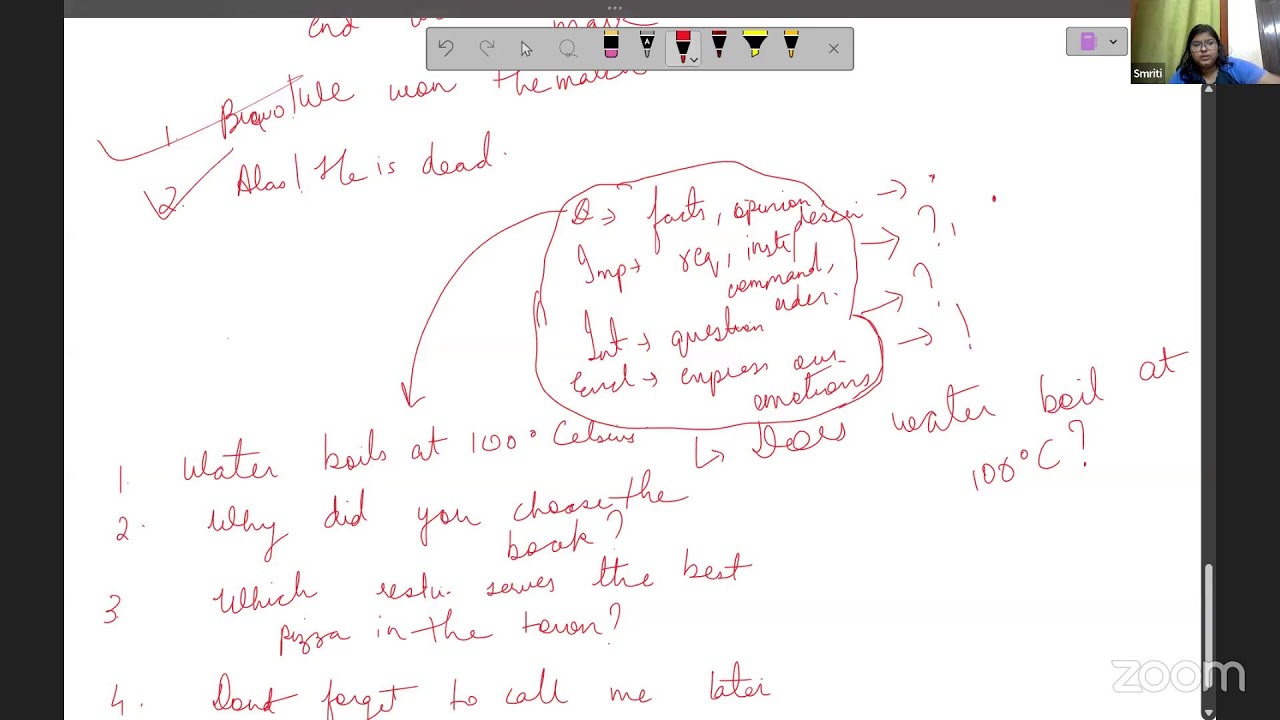 end
1. Bravo! We won the match
2. Alas! He is dead.
D → facts, opinion → .
descri
Imp → req, inst/ → ? ,
command,
order.
Int → question → ?
Excl → express our → !
emotions
1. Water boils at 100° Celsius
↳ Does water boil at
100°C?
2. Why did you choose the
book?
3. Which restu. serves the best
pizza in the town?
4. Dont forget to call me later
Smriti
zoom